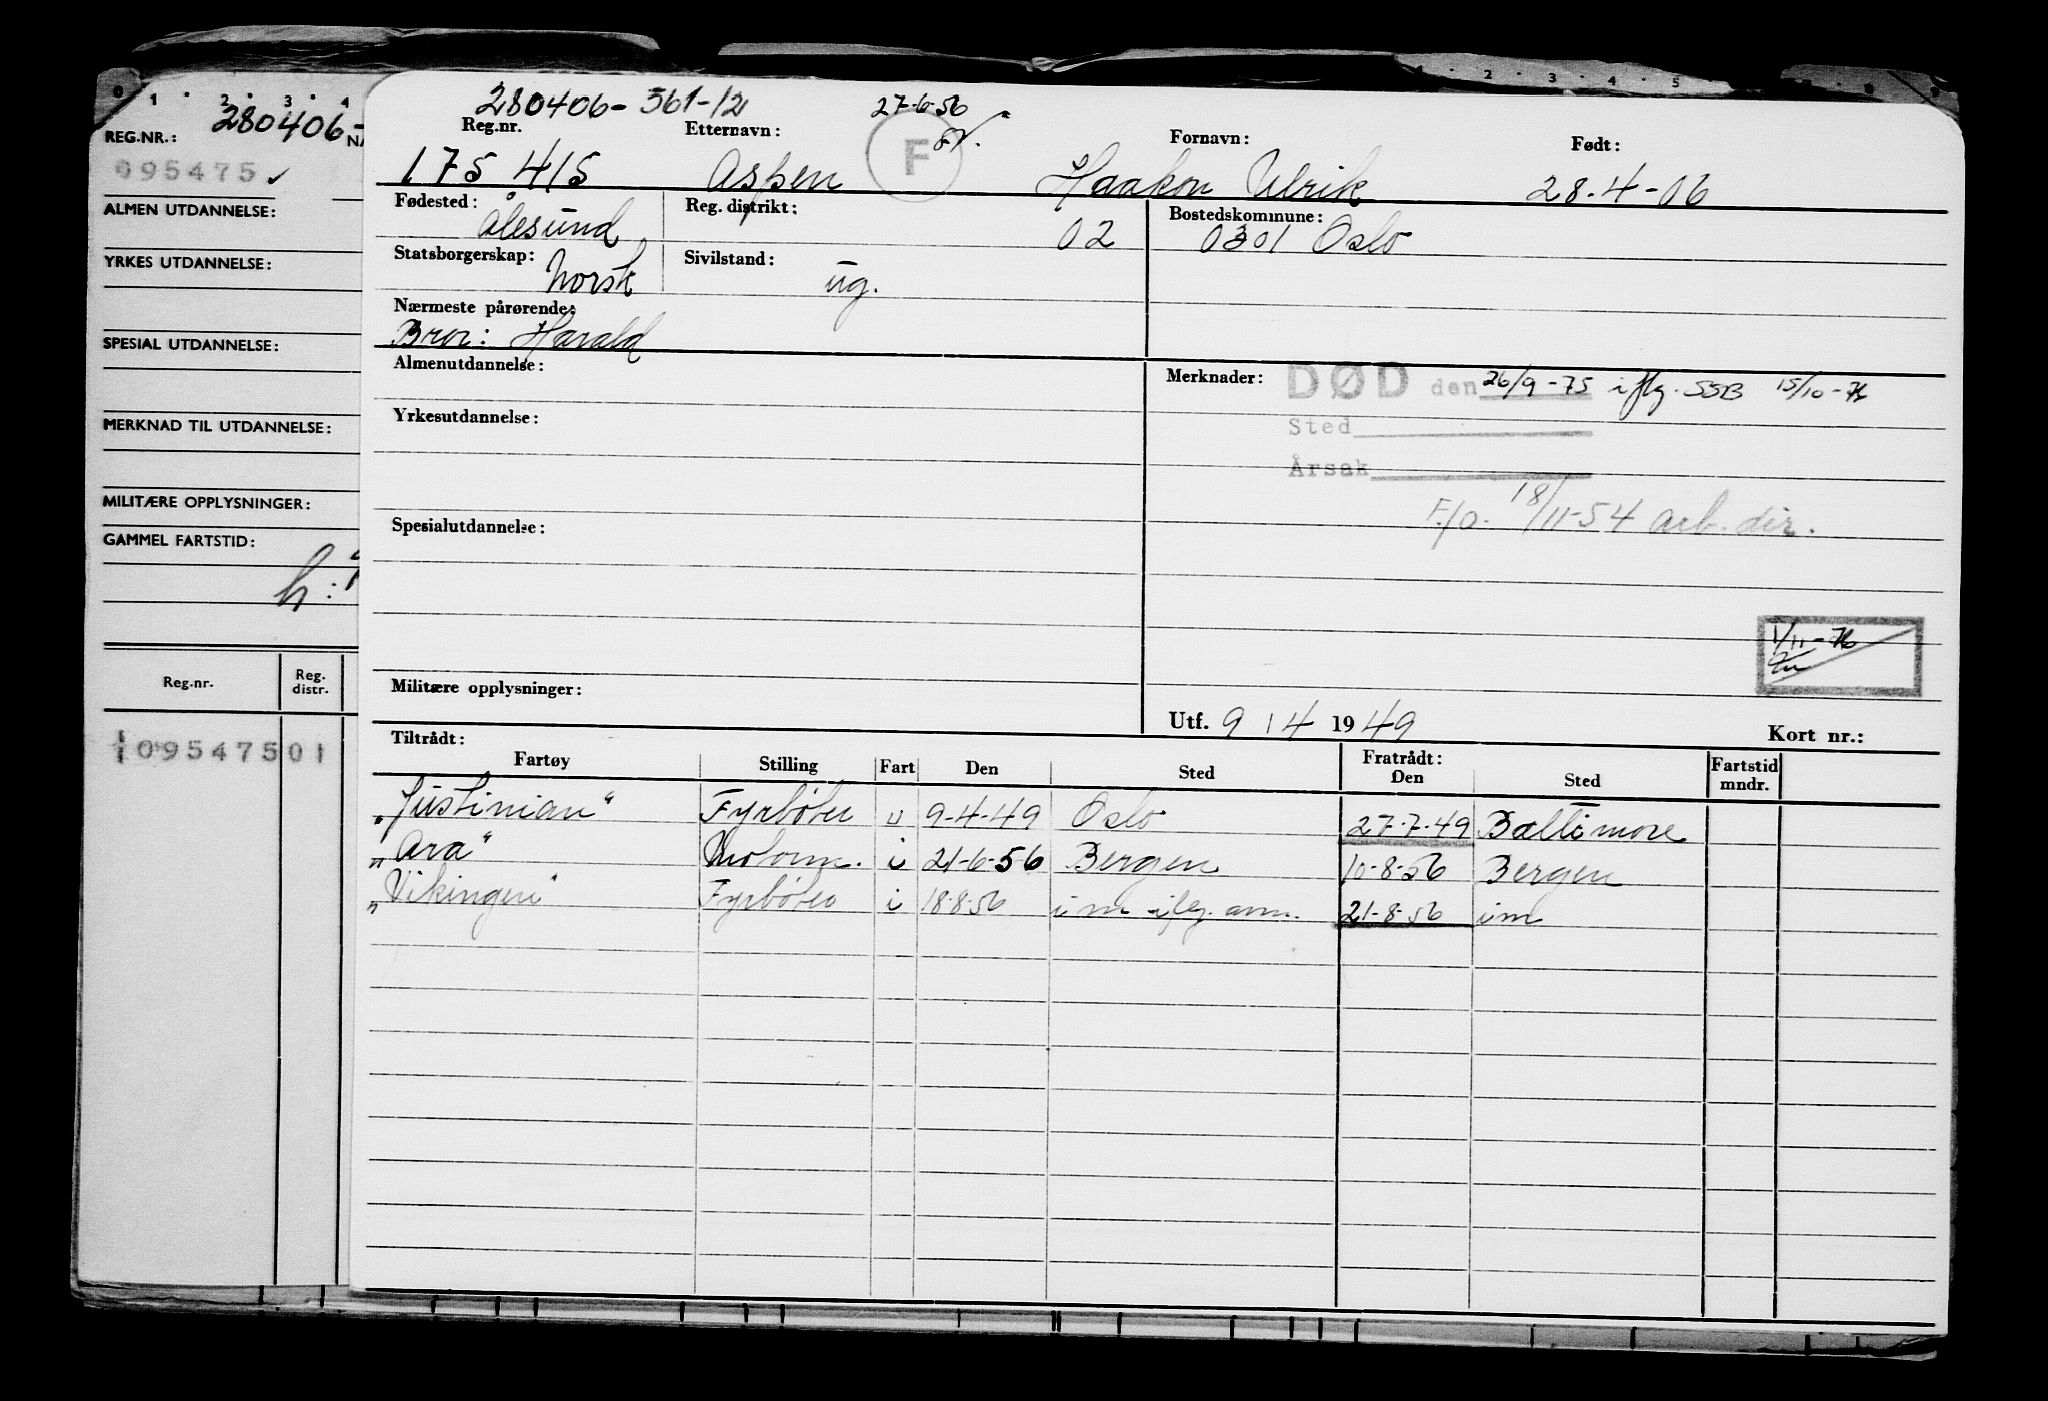 280406-
REG.NR.:
095475 ✓
ALMEN UTDANNELSE:
YRKES UTDANNELSE:
SPESIAL UTDANNELSE:
MERKNAD TIL UTDANNELSE:
MILITÆRE OPPLYSNINGER:
GAMMEL FARTSTID:
h:
Reg.nr. Reg. distr.
109547501
280406-361-12 27-6-56
Reg.nr. Etternavn: F Fornavn: Født:
175 415 Aspen Haakon Ulrik 28-4-06
Fødested: Reg. distrikt: Bostedskommune:
Ålesund 02 0301 Oslo
Statsborgerskap: Norsk Sivilstand: ug.
Nærmeste pårørende:
Bror: Harald
Almenutdannelse: Merknader: DØD den 26/9-75 iflg. SSB 15/10-76
Yrkesutdannelse: Sted
Årsak
F/o. 18/11-54 arb. dir.
Spesialutdannelse:
1/11-76
Militære opplysninger: Utf. 9/4 1949 Kort nr.:
Tiltrådt: Fratrådt:
Fartøy Stilling Fart Den Sted Den Sted Fartstid mndr.
"Justinian" Fyrbøter u 9-4-49 Oslo 27-7-49 Baltimore
"Ara" Motorm. i 21-6-56 Bergen 10-8-56 Bergen
"Vikingen" Fyrbøter i 18-8-56 i m iflg. ann. 21-8-56 i m